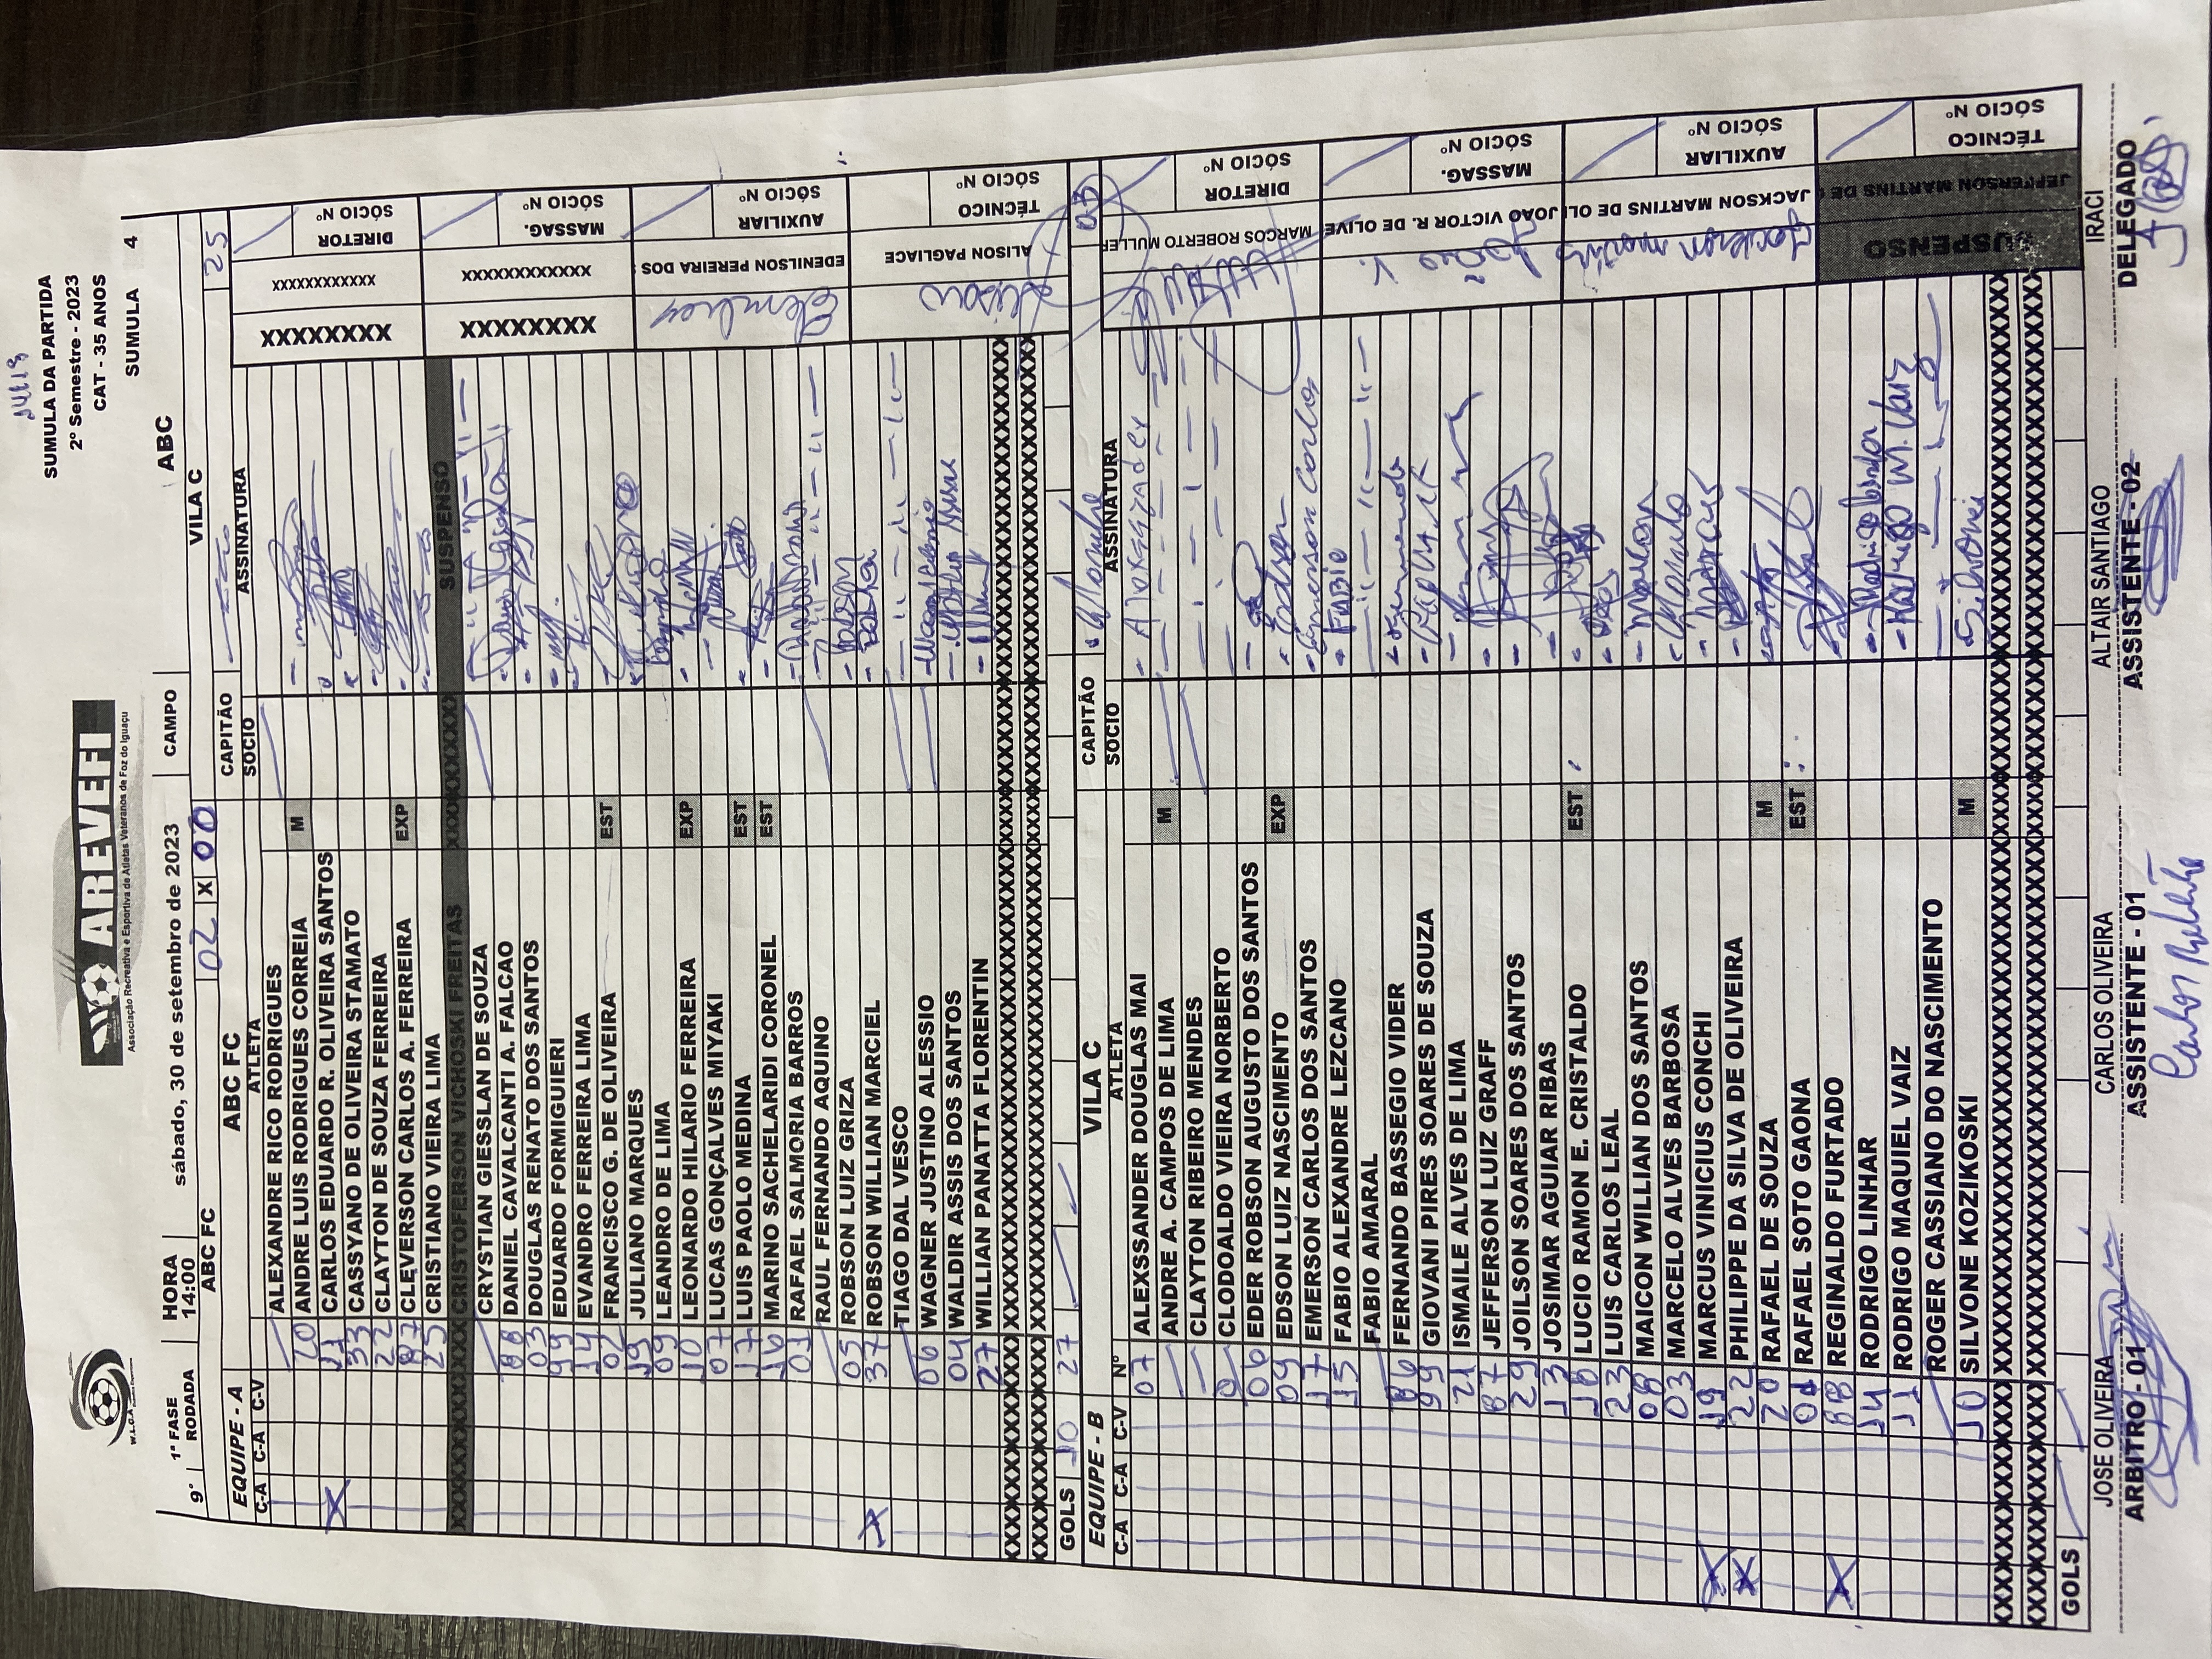 SUMULA DA PARTIDA
2º Semestre - 2023
CAT - 35 ANOS
SUMULA 4
W.L.O.A
AREVEFI
Associação Recreativa e Esportiva de Atletas Veteranos de Foz do Iguaçu
9º 1ª FASE RODADA HORA 14:00 sábado, 30 de setembro de 2023 CAMPO ABC
ABC FC 02 X 00 VILA C
EQUIPE - A ABC FC CAPITÃO 25
C-A C-A C-V ATLETA SOCIO ASSINATURA
ALEXANDRE RICO RODRIGUES
20 ANDRE LUIS RODRIGUES CORREIA M
11 CARLOS EDUARDO R. OLIVEIRA SANTOS
X 33 CASSYANO DE OLIVEIRA STAMATO
22 CLAYTON DE SOUZA FERREIRA
87 CLEVERSON CARLOS A. FERREIRA EXP
25 CRISTIANO VIEIRA LIMA
XXXXXXXXXX CRISTOFERSON VICHOSKI FREITAS XXXXXXXXX SUSPENSO
CRYSTIAN GIESSLAN DE SOUZA
88 DANIEL CAVALCANTI A. FALCAO
03 DOUGLAS RENATO DOS SANTOS
99 EDUARDO FORMIGUIERI
14 EVANDRO FERREIRA LIMA
02 FRANCISCO G. DE OLIVEIRA EST
19 JULIANO MARQUES
09 LEANDRO DE LIMA
10 LEONARDO HILARIO FERREIRA EXP
07 LUCAS GONÇALVES MIYAKI
17 LUIS PAOLO MEDINA EST
16 MARINO SACHELARIDI CORONEL EST
01 RAFAEL SALMORIA BARROS
RAUL FERNANDO AQUINO
05 ROBSON LUIZ GRIZA Robson
X 37 ROBSON WILLIAN MARCIEL
TIAGO DAL VESCO
06 WAGNER JUSTINO ALESSIO
04 WALDIR ASSIS DOS SANTOS
27 WILLIAN PANATTA FLORENTIN
GOLS 10 27
XXXXXXXX XXXXXXXXXXXX DIRETOR SÓCIO Nº
XXXXXXXX XXXXXXXXXXXX MASSAG. SÓCIO Nº
EDENILSON PEREIRA DOS AUXILIAR SÓCIO Nº
Alison ALISON PAGLIACE TÉCNICO SÓCIO Nº
EQUIPE - B VILA C CAPITÃO 03
C-A C-A C-V Nº ATLETA SOCIO ASSINATURA
07 ALEXSSANDER DOUGLAS MAI
ANDRE A. CAMPOS DE LIMA M
CLAYTON RIBEIRO MENDES
01 CLODOALDO VIEIRA NORBERTO
06 EDER ROBSON AUGUSTO DOS SANTOS
09 EDSON LUIZ NASCIMENTO EXP Edson
17 EMERSON CARLOS DOS SANTOS Emerson Carlos
15 FABIO ALEXANDRE LEZCANO FABIO
FABIO AMARAL
86 FERNANDO BASSEGIO VIDER
99 GIOVANI PIRES SOARES DE SOUZA
21 ISMAILE ALVES DE LIMA
87 JEFFERSON LUIZ GRAFF
29 JOILSON SOARES DOS SANTOS
13 JOSIMAR AGUIAR RIBAS
18 LUCIO RAMON E. CRISTALDO EST
23 LUIS CARLOS LEAL
08 MAICON WILLIAN DOS SANTOS Maicon
03 MARCELO ALVES BARBOSA Marcelo
X 19 MARCUS VINICIUS CONCHI Marcus
X 22 PHILIPPE DA SILVA DE OLIVEIRA
20 RAFAEL DE SOUZA M
01 RAFAEL SOTO GAONA EST
X 88 REGINALDO FURTADO
14 RODRIGO LINHAR
11 RODRIGO MAQUIEL VAIZ Rodrigo M. Vaiz
ROGER CASSIANO DO NASCIMENTO
10 SILVONE KOZIKOSKI M Silvone
GOLS
MARCOS ROBERTO MULLER DIRETOR SÓCIO Nº
João V. JOÃO VICTOR R. DE OLIVE MASSAG. SÓCIO Nº
Jackson Martins JACKSON MARTINS DE OLI AUXILIAR SÓCIO Nº
SUSPENSO JEFFERSON MARTINS DE TÉCNICO SÓCIO Nº
JOSE OLIVEIRA CARLOS OLIVEIRA ALTAIR SANTIAGO IRACI
ARBITRO - 01 ASSISTENTE - 01 ASSISTENTE - 02 DELEGADO